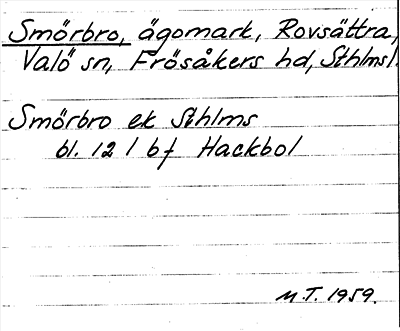 Smörbro, ägomark, Rovsättra,
Valö sn, Frösåkers hd, Sthlms l.
Smörbro ek Sthlms
bl. 12 1 bf Hackbol
M.T. 1959.